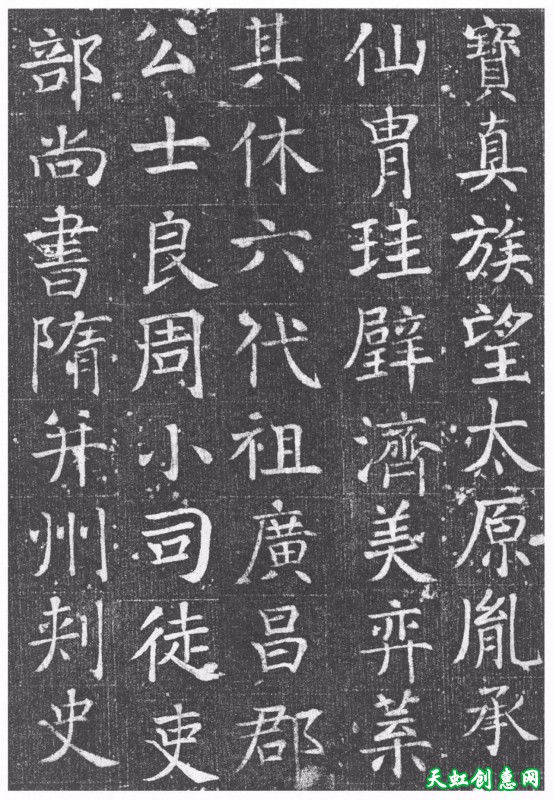 寶真族望太原胤承
仙胄珪璧濟美弈葉
其休六代祖廣昌郡
公士良周小司徒吏
部尚書隋并州刺史
天虹创意网